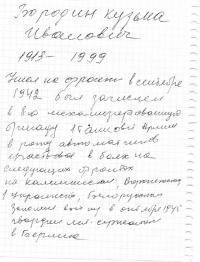 Бородин Кузьма
Иванович
1913 - 1999
Ушел на фронт в сентябре
1942 был зачислен
в 8ю механизированную
бригаду 1 танковой Армии
в роту автоматчиков
участвовал в боях на
следующих фронтах
на калининском, Воронежском
1 Украинск, Белорусском
закончил войну в октябре 1945
гвардии мл. сержантом
в Берлине